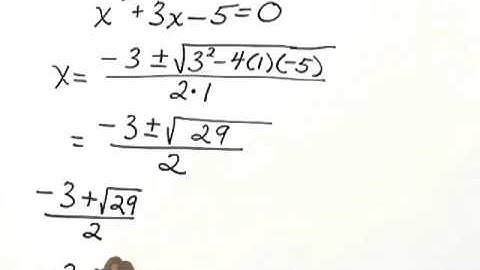 x + 3x - 5 = 0
x = (-3 ± √(3² - 4(1)(-5))) / (2·1)
= (-3 ± √29) / 2
(-3 + √29) / 2